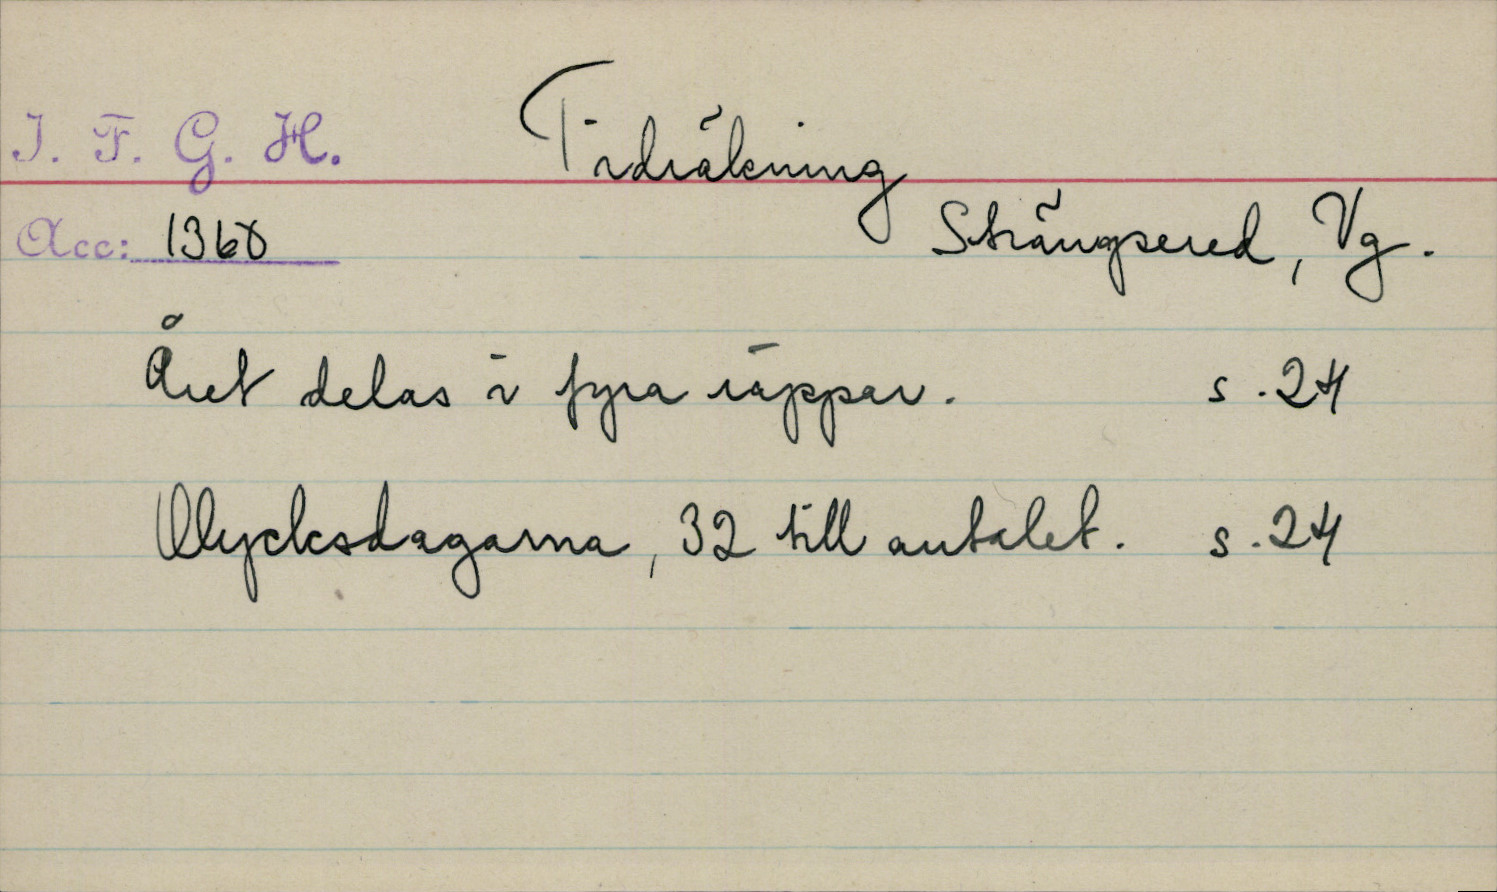 I. F. G. H. Tidräkning
Acc: 1368 Strängsered, Vg.
Året delas i fyra räppar. s. 24
Olycksdagarna, 32 till antalet. s. 24